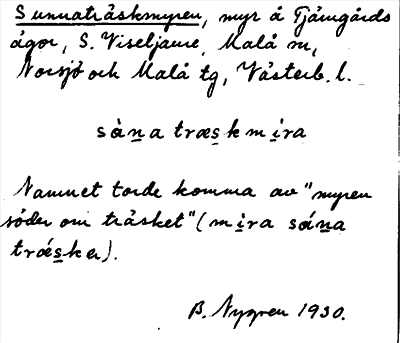 Sunnaträskmyren, myr å Tjämgårds
ägor, S. Viseljaure, Malå sn,
Norsjö och Malå tg, Västerb. l.
sȧṉa træs̱kmi̱ra
Namnet torde komma av "myren
söder om träsket" (mi̱ra sȧṉa
træs̱ke).
B. Nygren 1930.